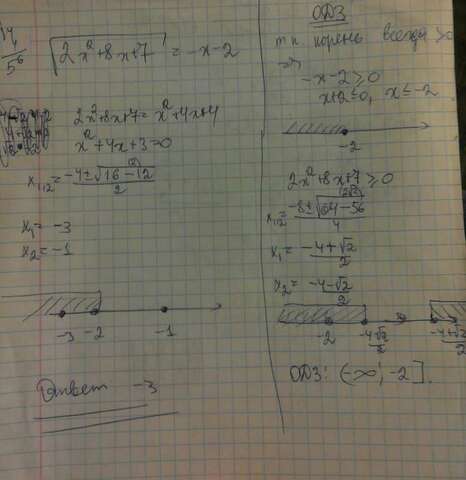 √(2x²+8x+7) = -x-2
2x²+8x+7 = x²+4x+4
x²+4x+3=0
x₁,₂ = (-4±√(16-12))/2
(2)
x₁ = -3
x₂ = -1
-3 -2 -1
Ответ -3
ОДЗ
т.к. корень всегда >0
⇒
-x-2≥0
x+2≤0, x≤-2
-2
2x²+8x+7≥0
x₁,₂ = (-8±√(64-56))/4
(2√2)
x₁ = (-4+√2)/2
x₂ = (-4-√2)/2
-2 (-4√2)/2 (-4+√2)/2
ОДЗ: (-∞; -2].